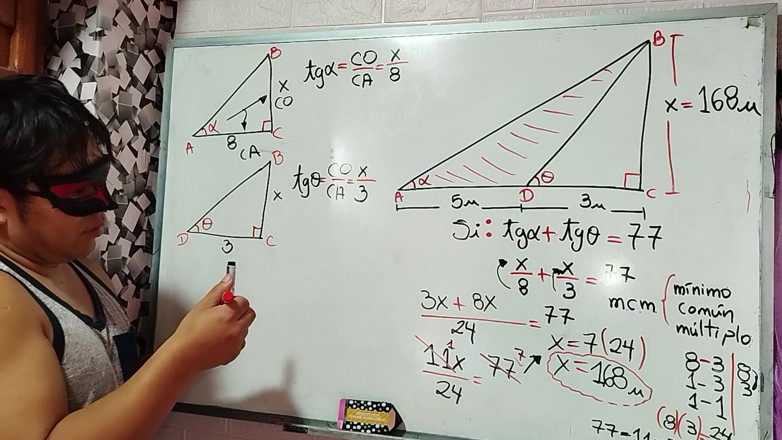 B
x
CO
A α 8 C
CA
tgα = CO/CA = x/8
B
x
D θ 3 C
tgθ = CO/CA = x/3
B
x = 168m
A α D θ C
5m 3m
Si: tgα + tgθ = 77
x/8 + x/3 = 77
3x + 8x / 24 = 77
mcm { mínimo
común
múltiplo
x = 7(24)
11x/24 = 77 7
1
x = 168m
8 - 3 | 8
1 - 3 | 3
1 - 1
(8)(3) 24